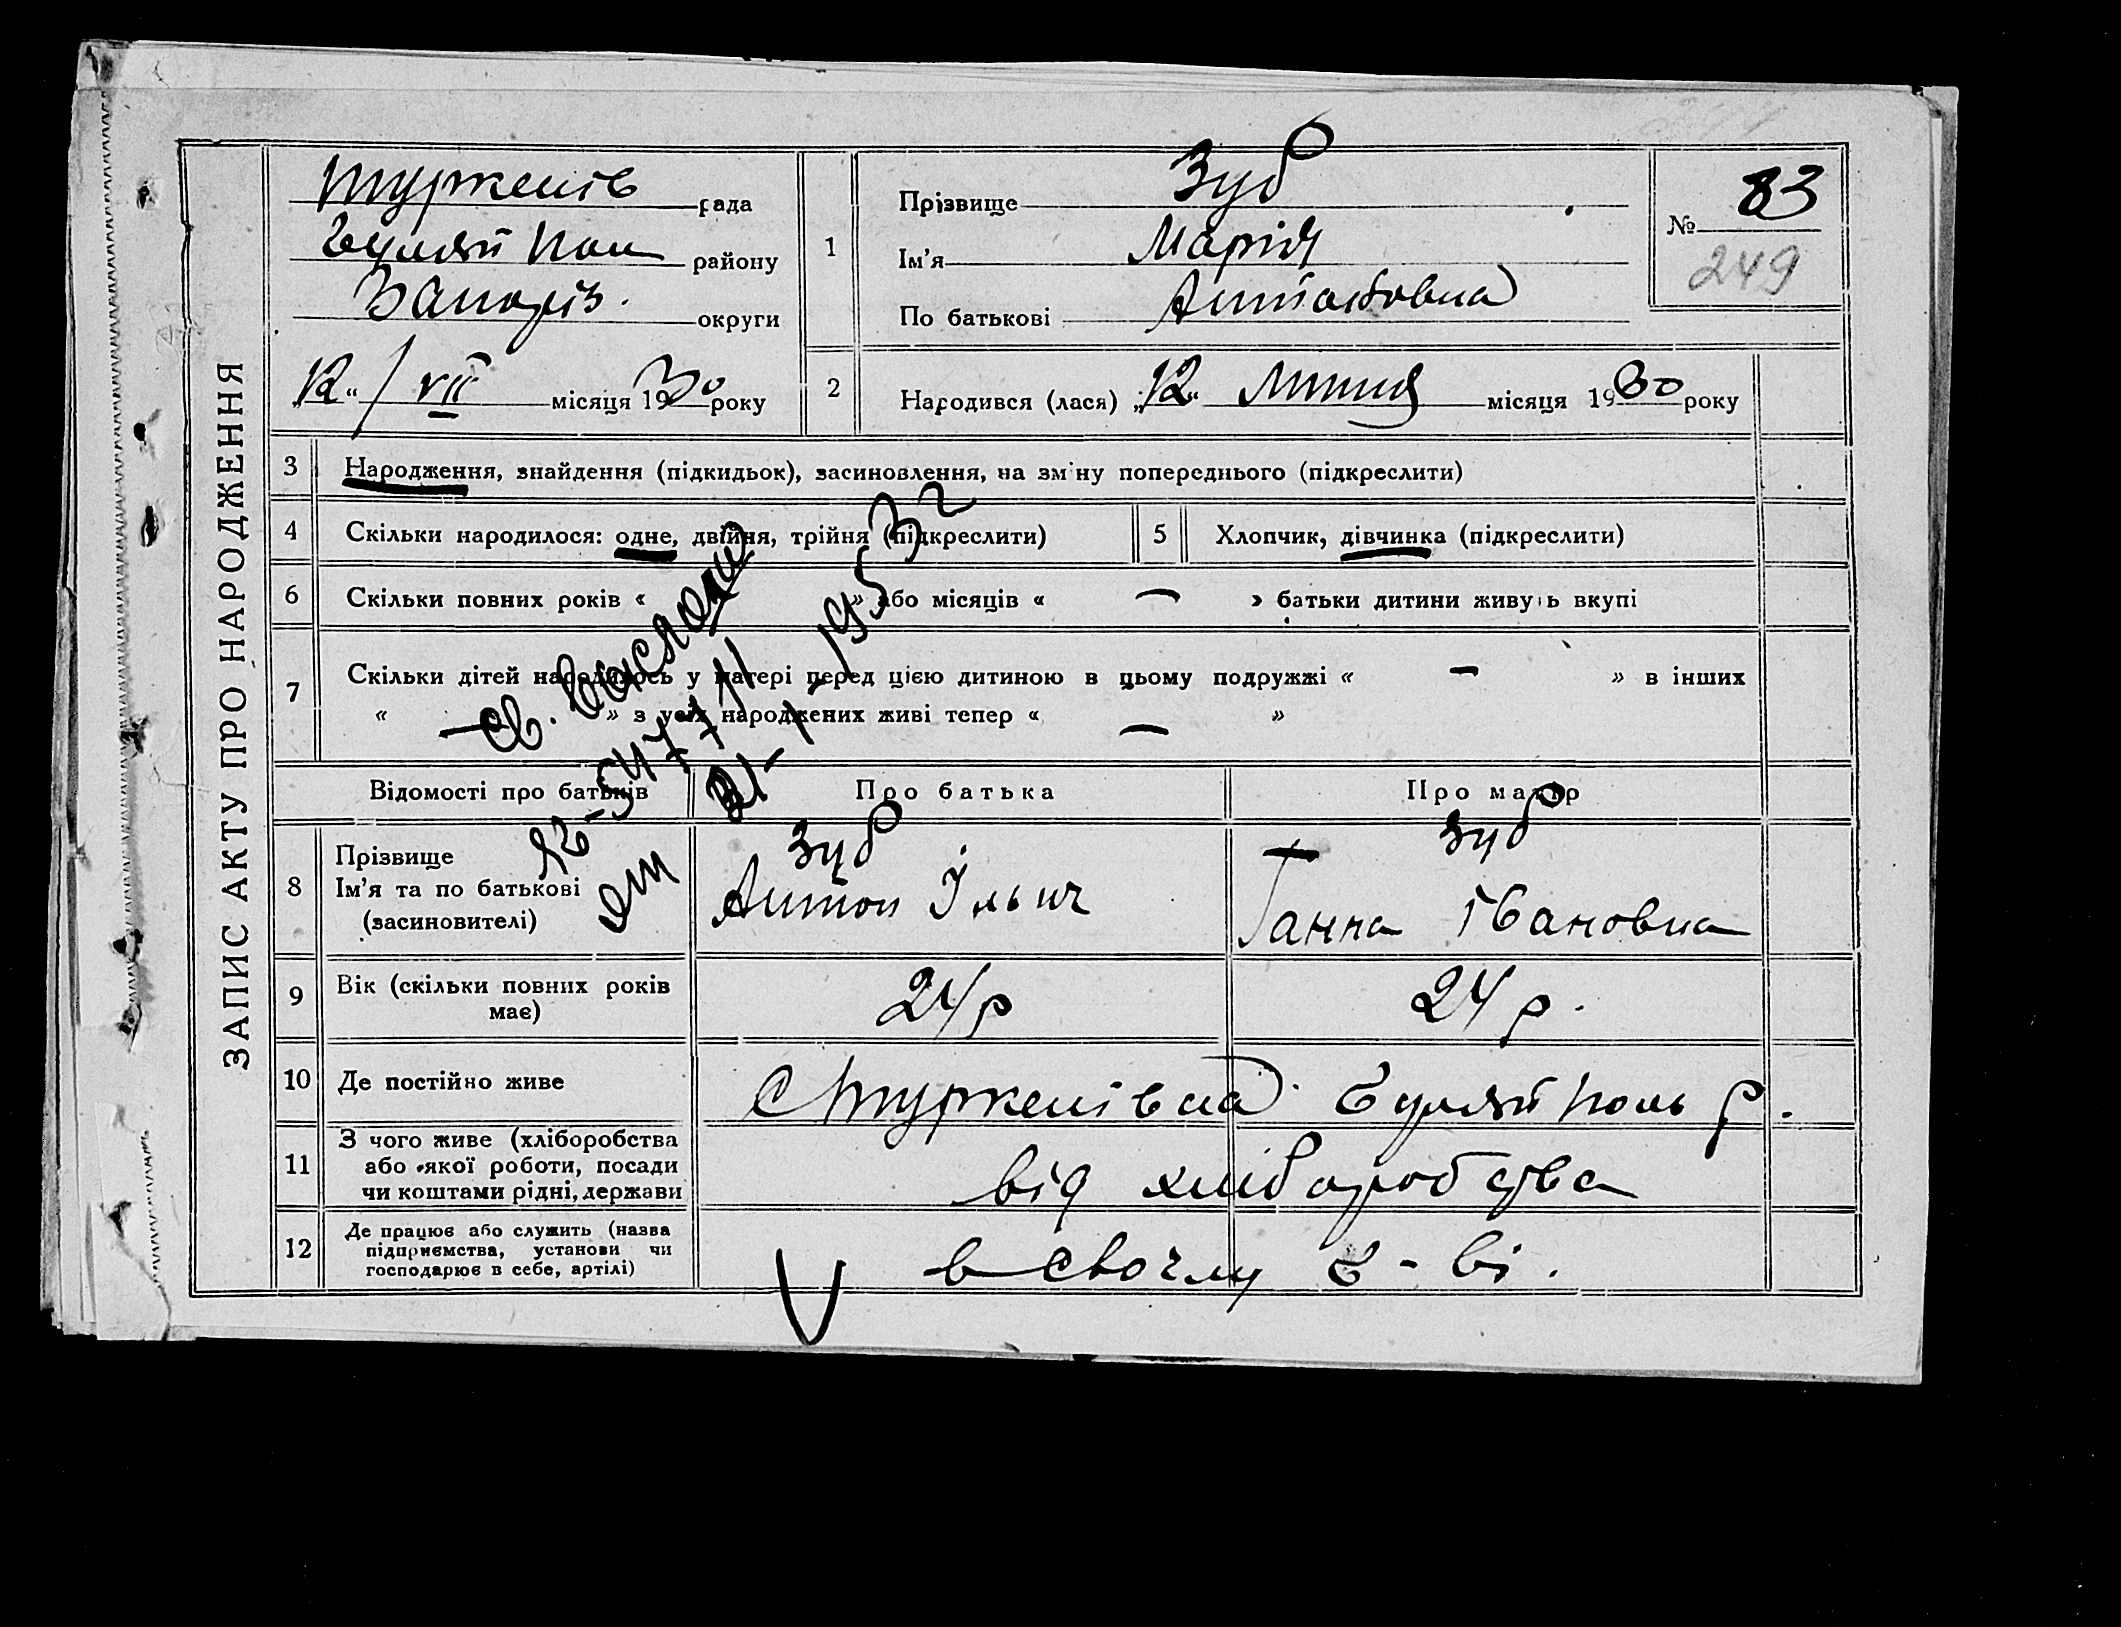 ЗАПИС АКТУ ПРО НАРОДЖЕННЯ
Туркенів рада
Гуляй Пол району
Запоріз. округи
„12“ / VII місяця 1930 року
1
Прізвище Зуб
Ім'я Марія
По батькові Антоновна
№ 83
249
2 Народився (лася) „12“ Липня місяця 1930 року
3 Народження, знайдення (підкидьок), засиновлення, на зміну попереднього (підкреслити)
4 Скільки народилося: одне, двійня, трійня (підкреслити)
5 Хлопчик, дівчинка (підкреслити)
6 Скільки повних років « » або місяців « — » батьки дитини живуть вкупі
7 Скільки дітей народилось у матері перед цією дитиною в цьому подружжі « — » в інших
« — » з усіх народжених живі тепер « — »
св.
21-1-1953
Відомості про батьків
Про батька
Про матір
8 Прізвище
Ім'я та по батькові
(засиновителі)
Зуб
Антон Ільич
Зуб
Ганна Івановна
9 Вік (скільки повних років
має)
24 р
24 р.
10 Де постійно живе
с Туркенівка Гуляй Поль р.
11 З чого живе (хліборобства
або якої роботи, посади
чи коштами рідні, держави
від хліборобства
12 Де працює або служить (назва
підприємства, установи чи
господарює в себе, артілі)
в своему г-ві.